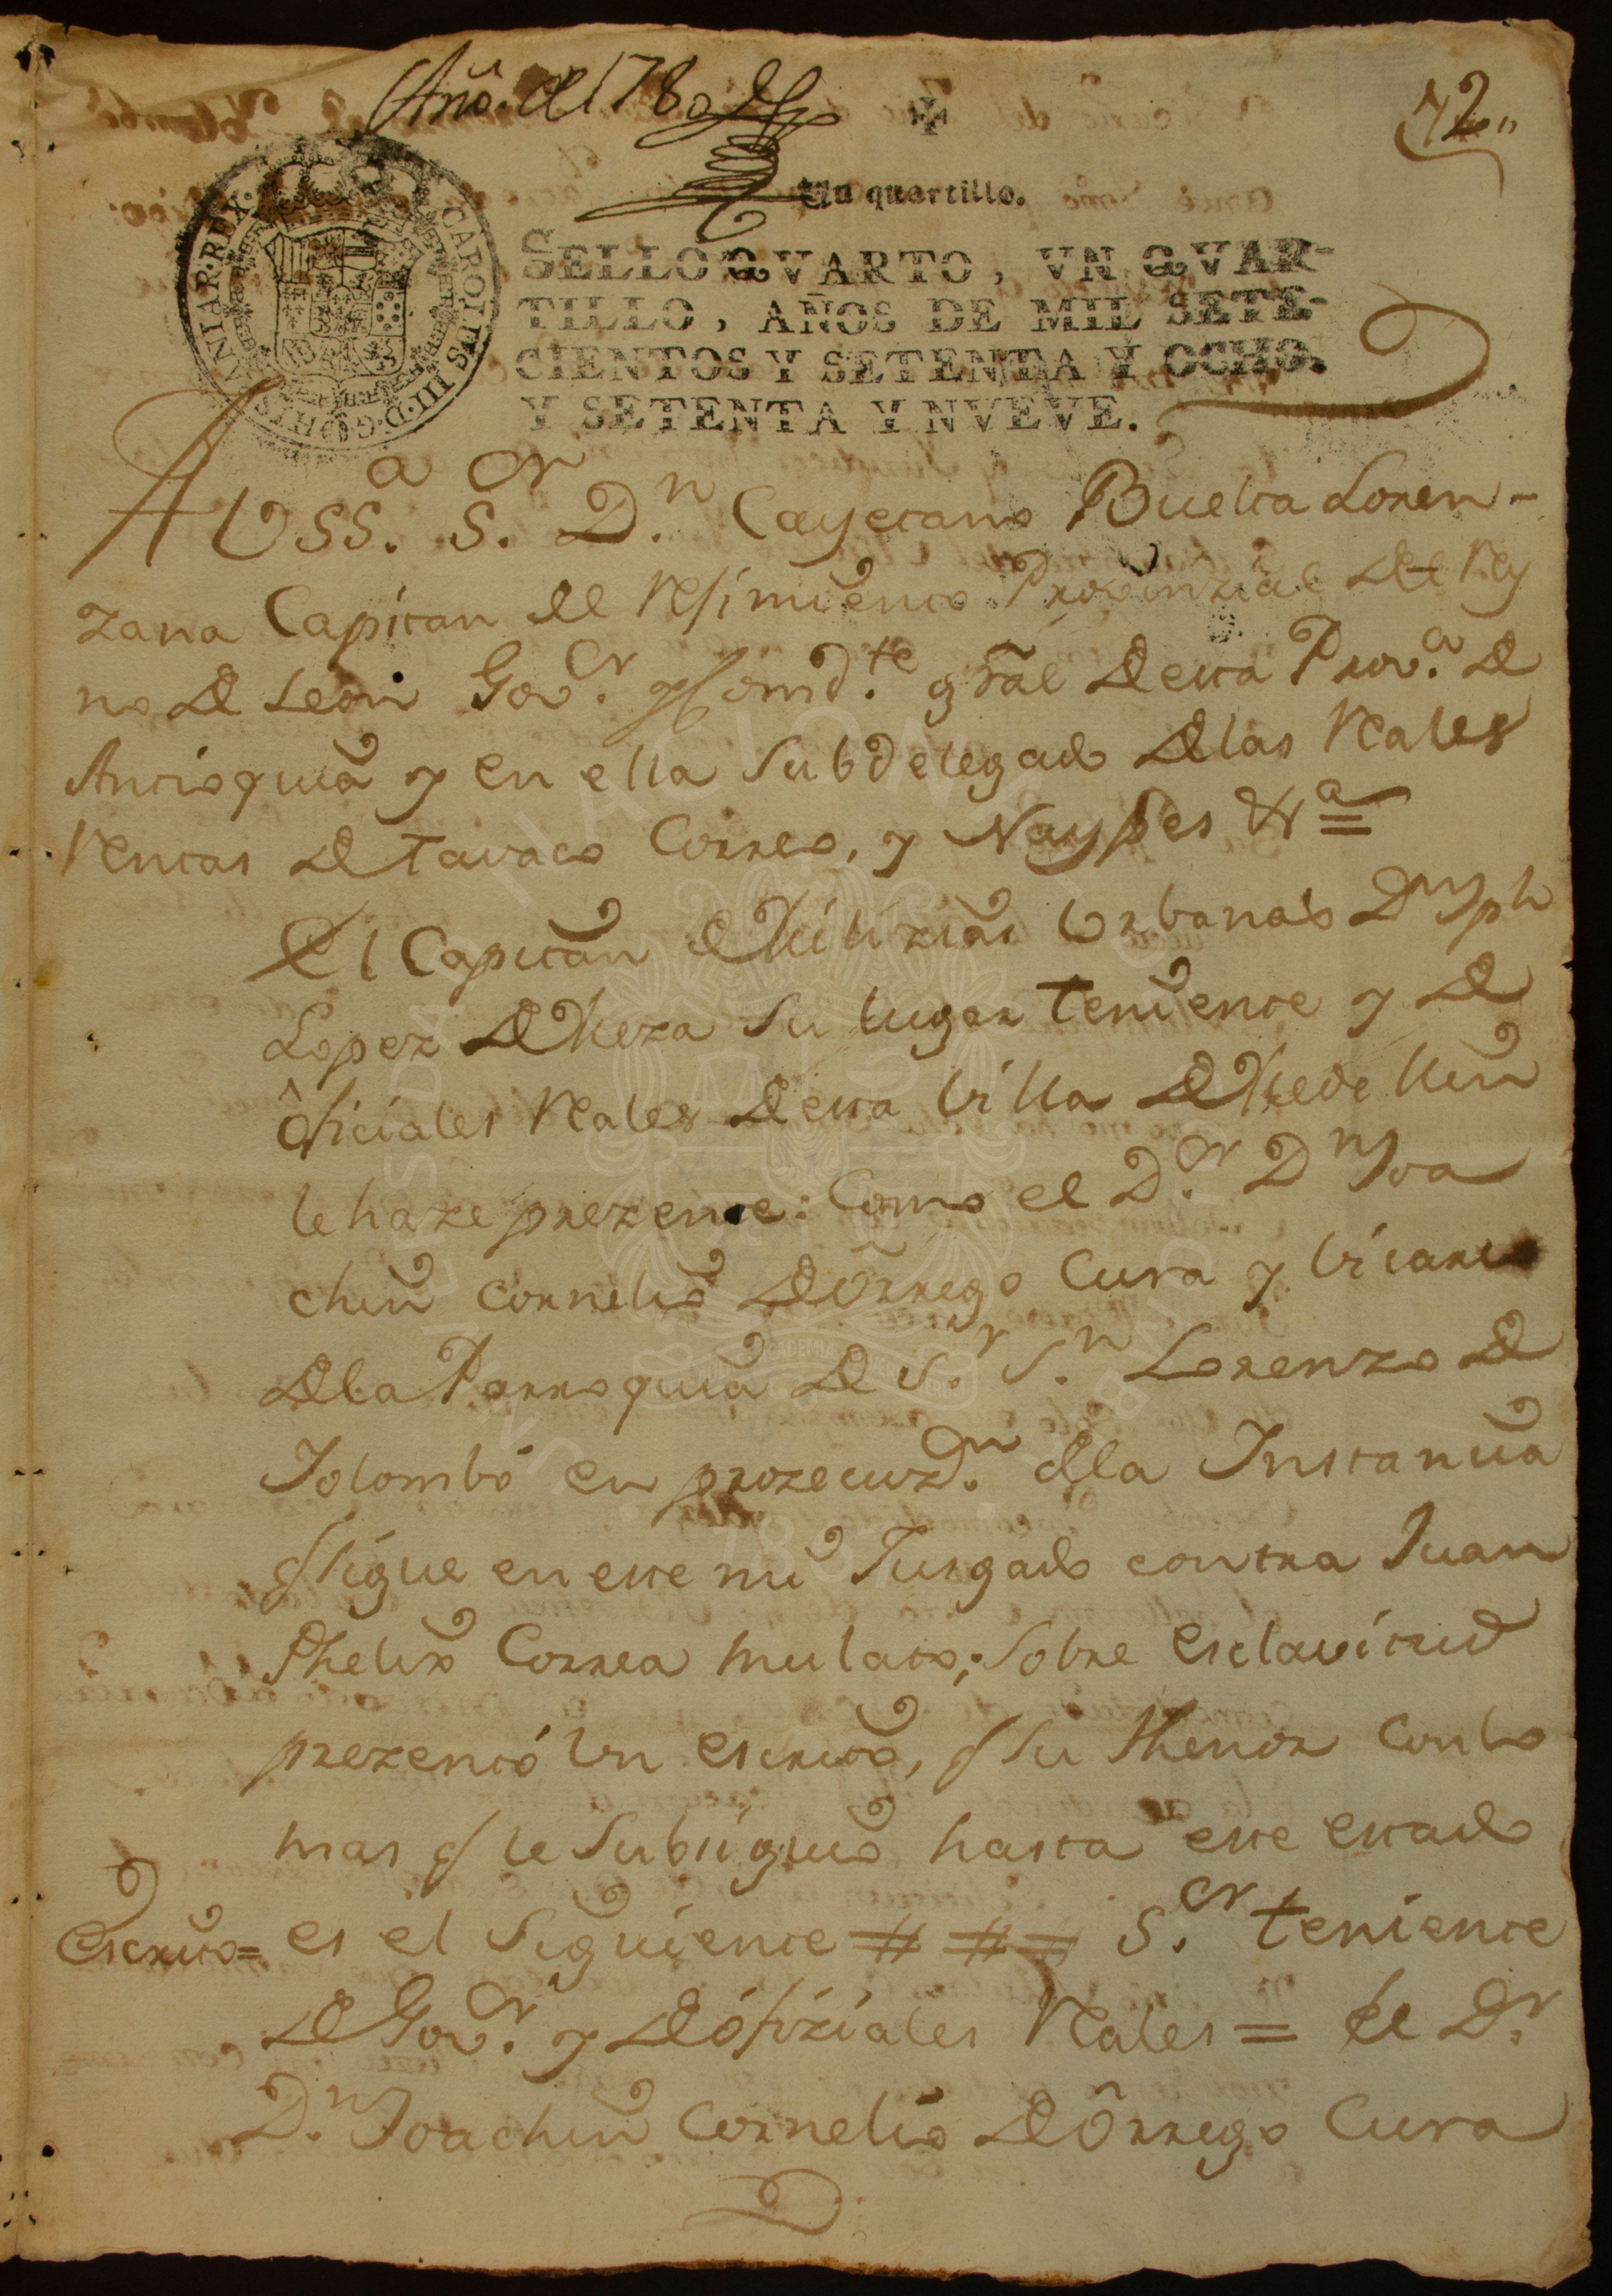 Año. de 1780
72
Un quartillo.
SELLO QVARTO, VN QVAR-
TILLO, AÑOS DE MIL SETE-
CIENTOS Y SETENTA Y OCHO.
Y SETENTA Y NVEVE.
CAROLUS III D.G. HISPANIAR. REX.
A VSSª. Sºr. Dn. Cayetano Buelta Loren-
zana Capitan del Regimiento Provinzial del Rey
no de Leon Govºr. y Comdte. gral de esta Provª. de
Antioquia y en ella Subdelegado de las Reales
Rentas de Tavaco Correo, y Naypes &ª =
El Capitan de Milizias Urbanas Dn Jph
Lopez de Meza su lugar teniente y de
ôficiales Reales de esta Villa de Medellin
le haze prezente: Como el Dºr. Dn Joa
chin Cornelio de Ôrrego Cura y Vicario
de la Parroquia de Sr. Sn. Lorenzo de
Yolombó en prozecuzon. de la Instancia
q sigue en este mi Juzgado contra Juan
Phelix Correa mulato; sobre esclavitud
prezentó Un escrito, q su thenor con lo
mas q le subsiguio hasta este estado
Escrito = es el siguiente = = = Sºr. teniente
de Govºr. y de ófiziales Reales = el Dr.
Dn. Joachin Cornelio de Ôrrego Cura